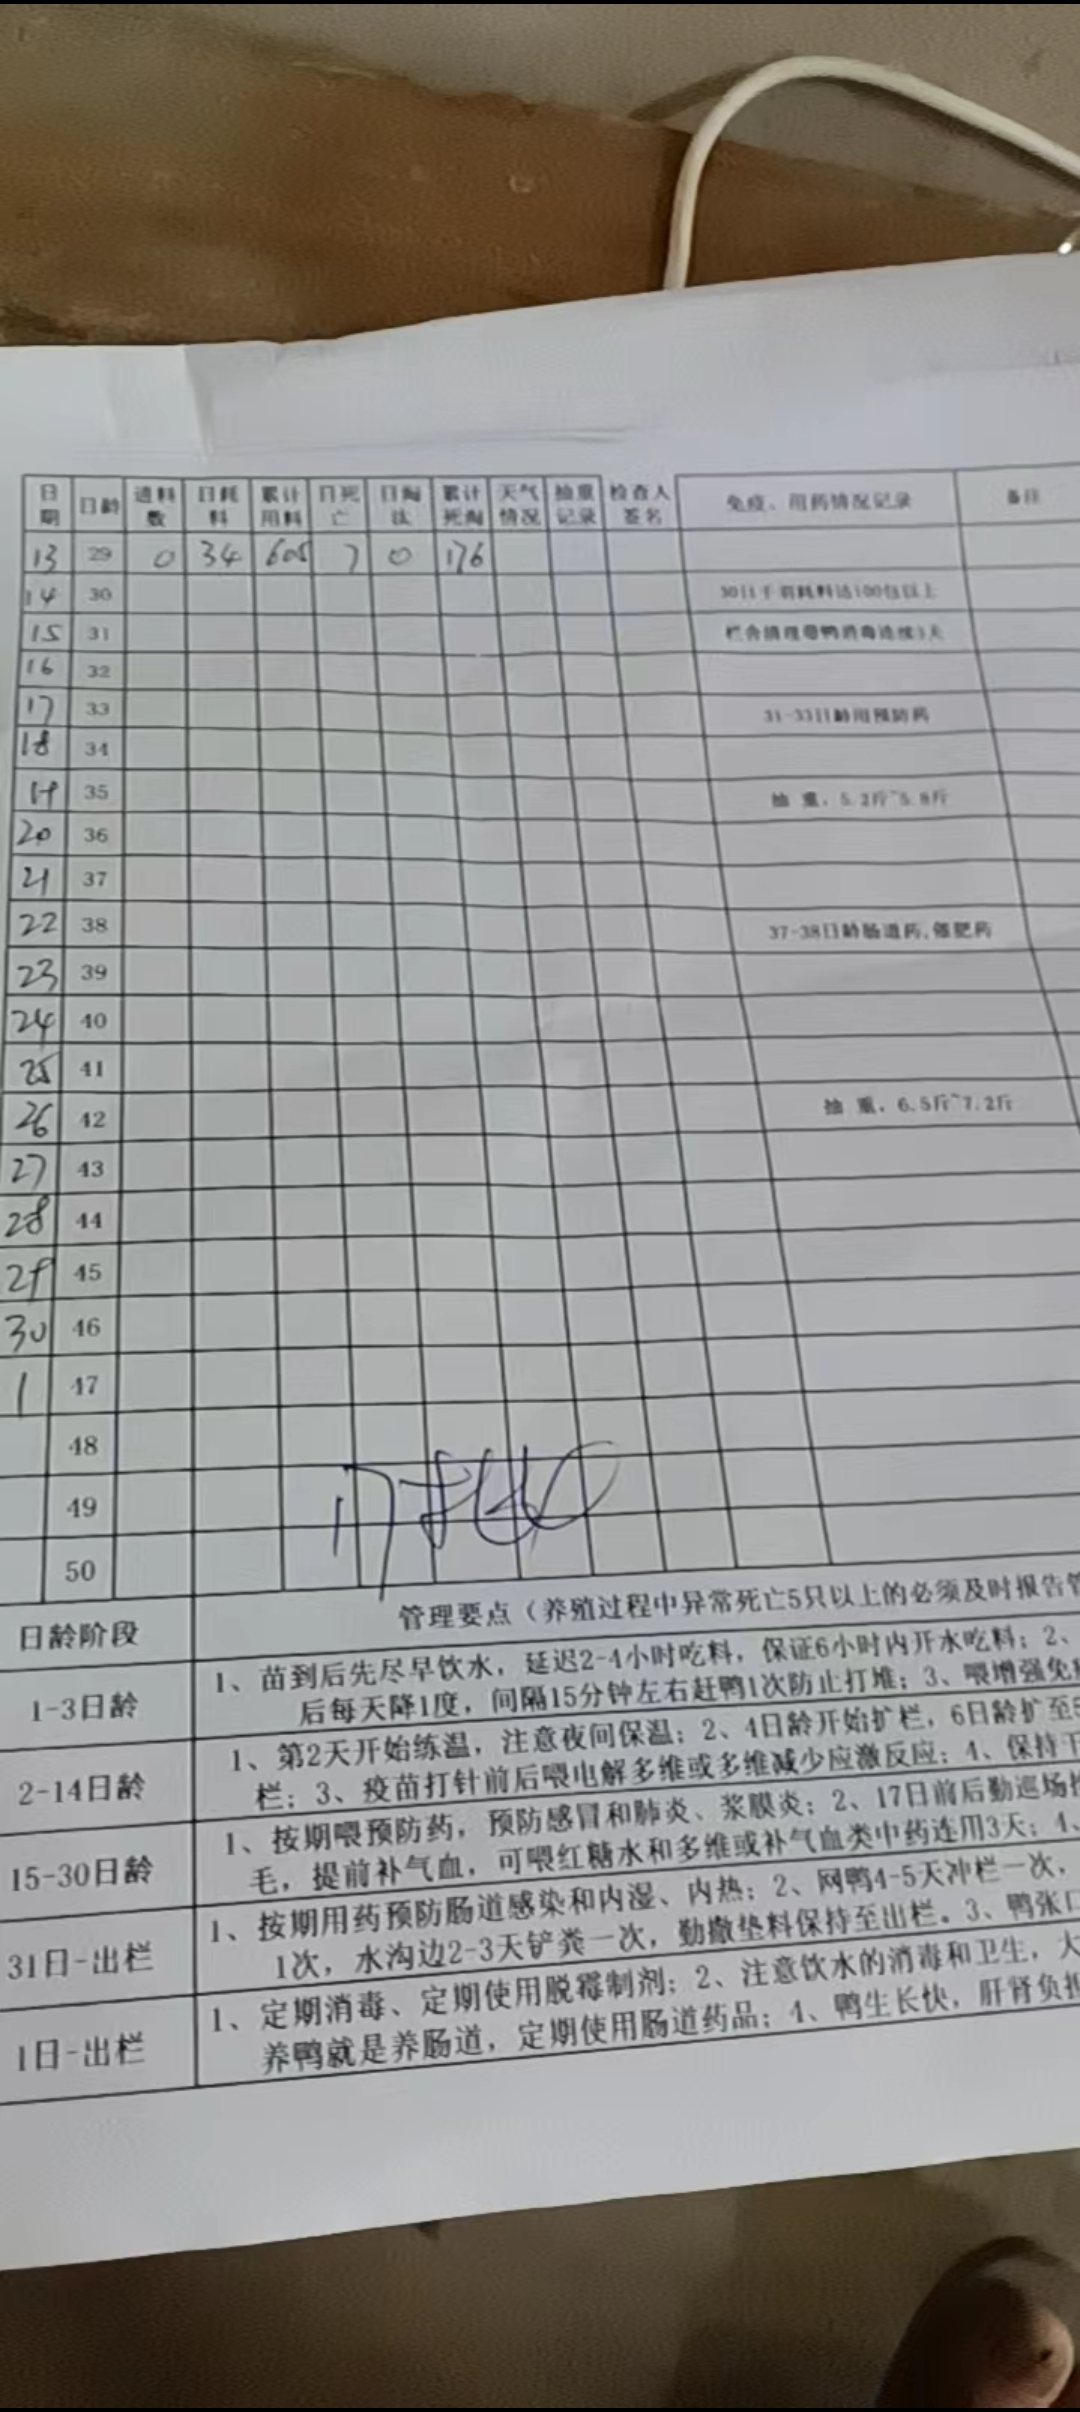 日期 日龄 进料数 日耗料 累计用料 日死亡 日淘汰 累计死淘 天气情况 抽重记录 检查人签名 免疫、用药情况记录 备注
13 29 0 34 605 7 0 176
14 30 30日千羽耗料达100包以上
15 31 栏舍清理带鸭消毒连续3天
16 32
17 33 31-33日龄用预防药
18 34
19 35 抽 重，5.2斤~5.8斤
20 36
21 37
22 38 37-38日龄肠道药,催肥药
23 39
24 40
25 41
26 42 抽 重，6.5斤~7.2斤
27 43
28 44
29 45
30 46
1 47
48
49
50
日龄阶段 管理要点（养殖过程中异常死亡5只以上的必须及时报告管
1-3日龄 1、苗到后先尽早饮水，延迟2-4小时吃料，保证6小时内开水吃料；2、
后每天降1度，间隔15分钟左右赶鸭1次防止打堆；3、喂增强免
2-14日龄 1、第2天开始练温，注意夜间保温；2、4日龄开始扩栏，6日龄扩至5
栏；3、疫苗打针前后喂电解多维或多维减少应激反应；4、保持干
15-30日龄 1、按期喂预防药，预防感冒和肺炎、浆膜炎；2、17日前后勤巡场
毛，提前补气血，可喂红糖水和多维或补气血类中药连用3天；4、
31日-出栏 1、按期用药预防肠道感染和内湿、内热；2、网鸭4-5天冲栏一次，
1次，水沟边2-3天铲粪一次，勤撒垫料保持至出栏。3、鸭张口
1日-出栏 1、定期消毒、定期使用脱霉制剂；2、注意饮水的消毒和卫生，大
养鸭就是养肠道，定期使用肠道药品；4、鸭生长快，肝肾负担